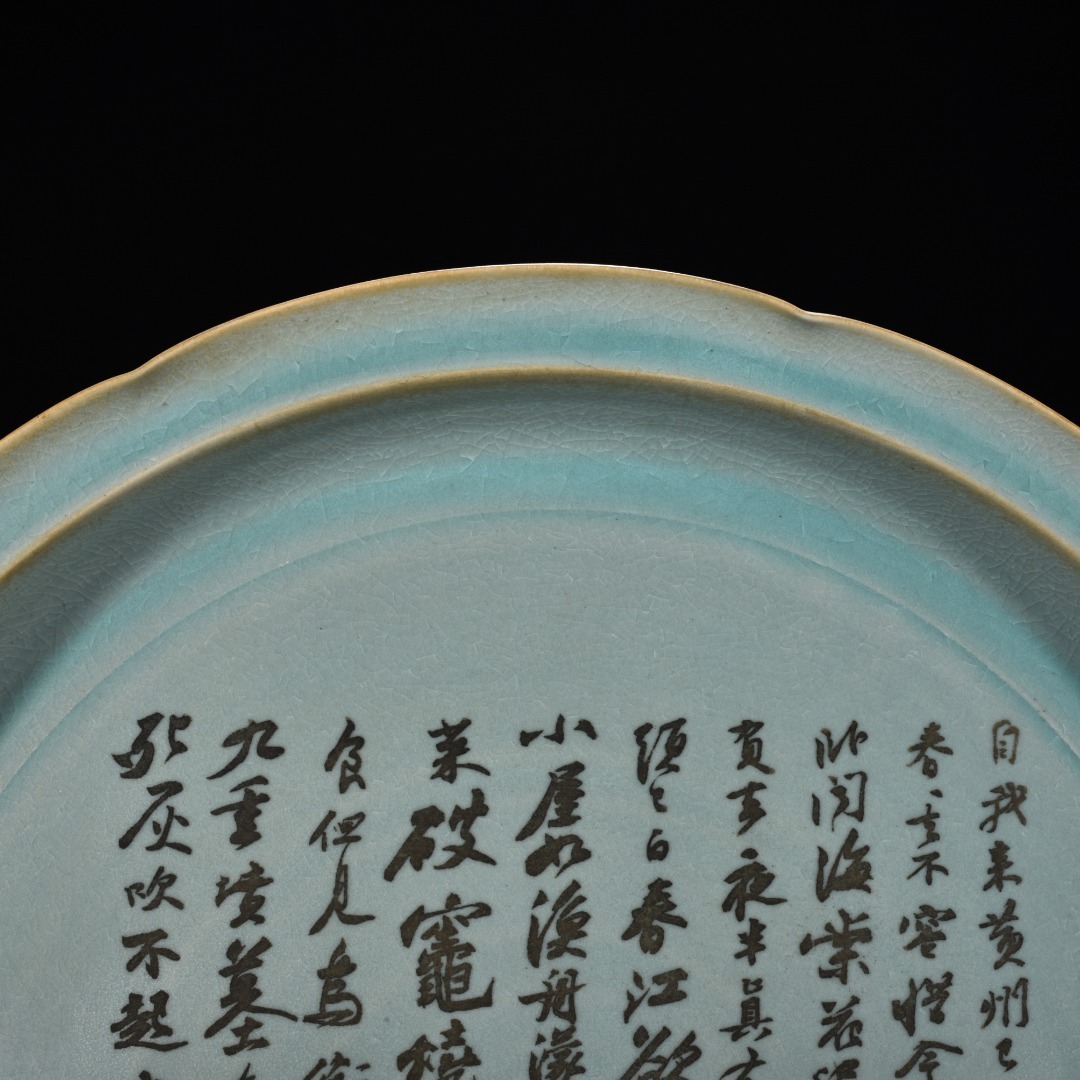 自我来黄州已
春、去不容惜今
卧聞海棠花
負去夜半真有
頭已白春江欲
小屋如漁舟濛
菜破竈燒
食但見烏銜
九重墳墓
死灰吹不起